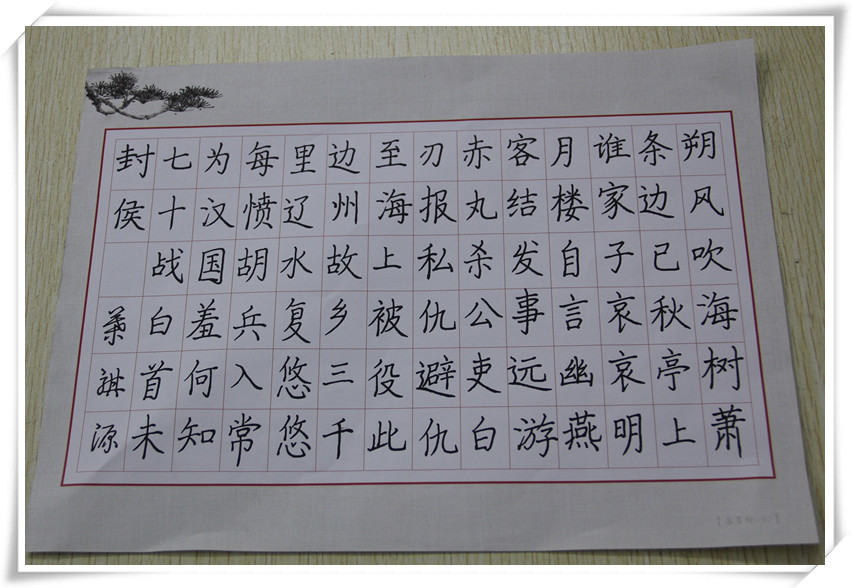 朔风吹海树萧
条边已秋亭上
谁家子哀哀明
月楼自言幽燕
客结发事远游
赤丸杀公吏白
刃报私仇避仇
至海上被役此
边州故乡三千
里辽水复悠悠
每愤胡兵入常
为汉国羞何知
七十战白首未
封侯 葉源